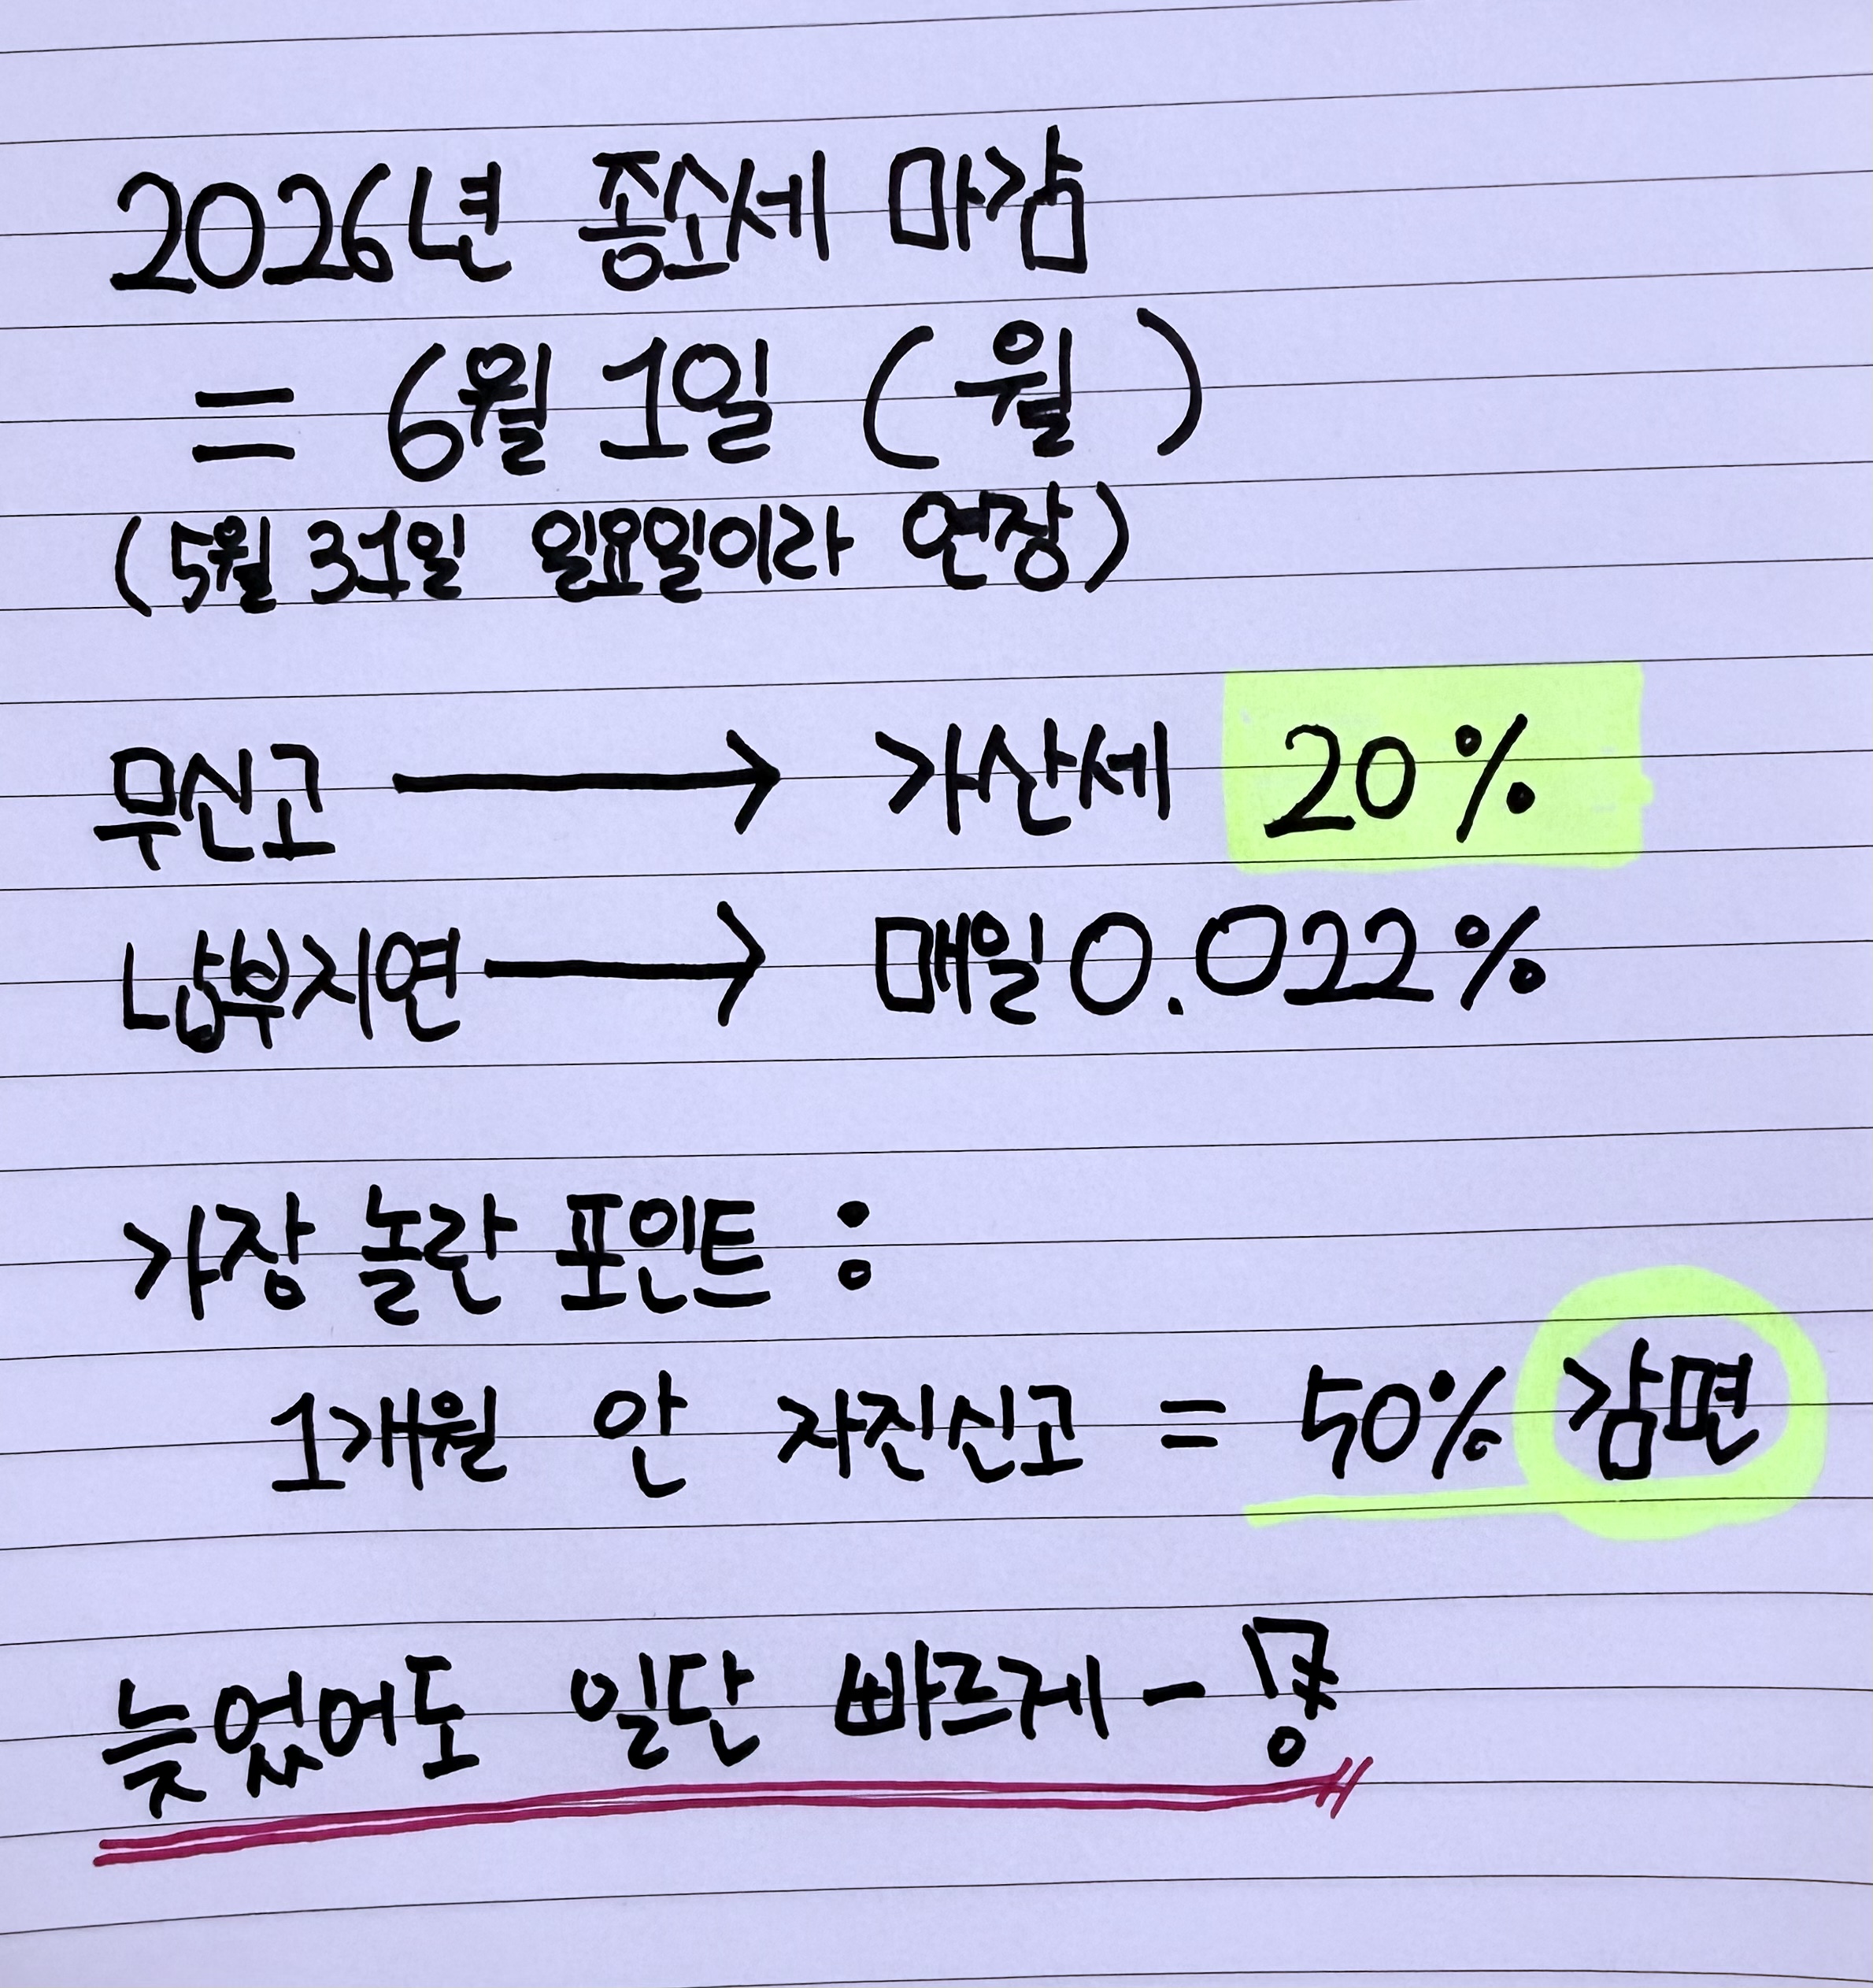 2026년 종소세 마감
= 6월 1일 (월)
(5월 31일 일요일이라 연장)
무신고 → 가산세 20%
납부지연 → 매일 0.022%
가장 놀란 포인트 :
1개월 안 자진신고 = 50% 감면
늦었어도 일단 빠르게 - !